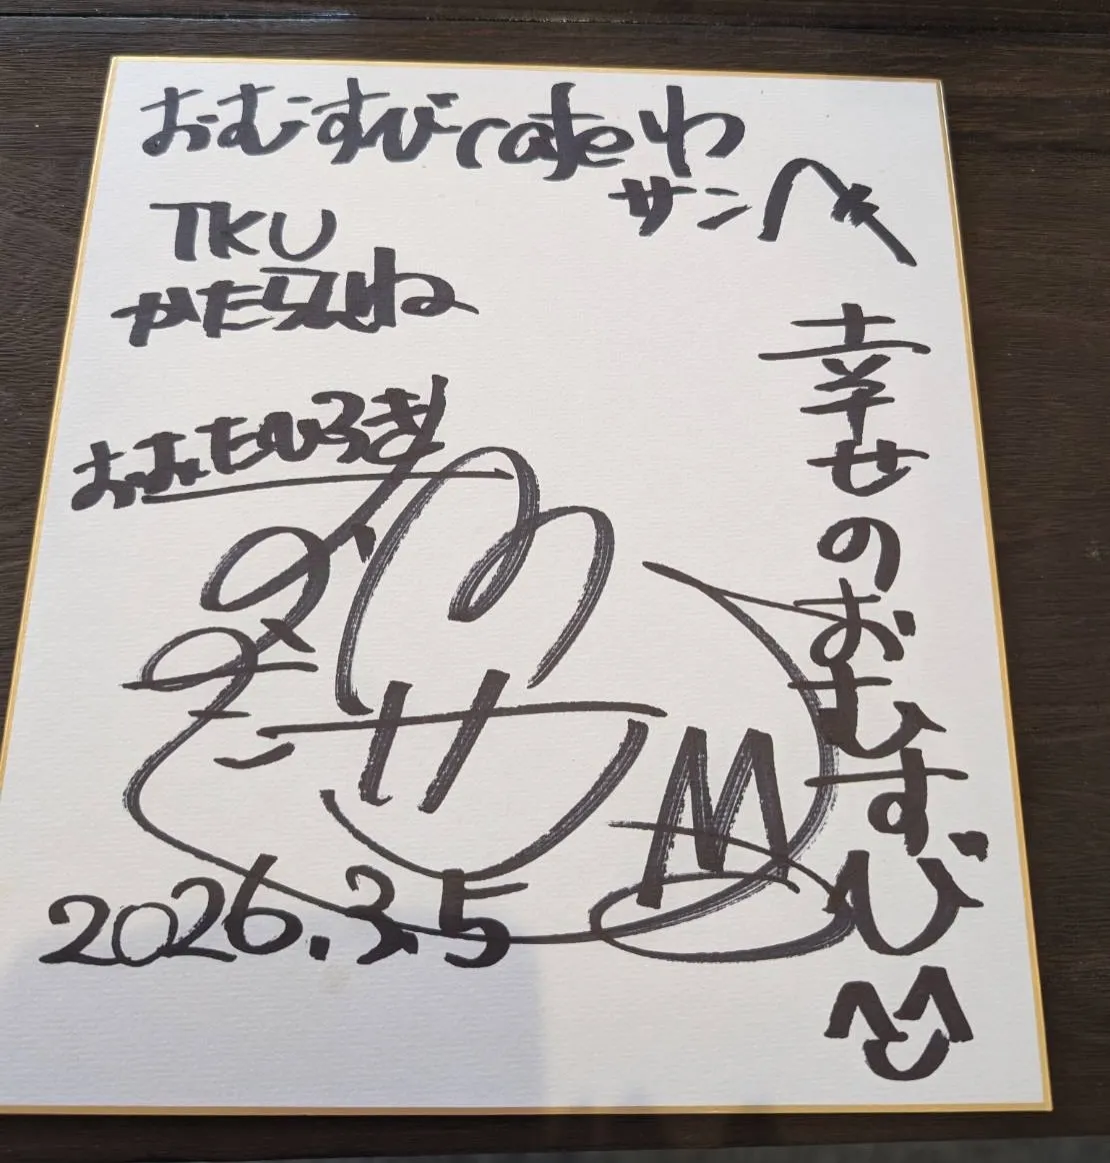 おむすびcafeわ
サンへ
TKU
かたらんね
おおたひろき
幸せのおむすび
2026.3.5